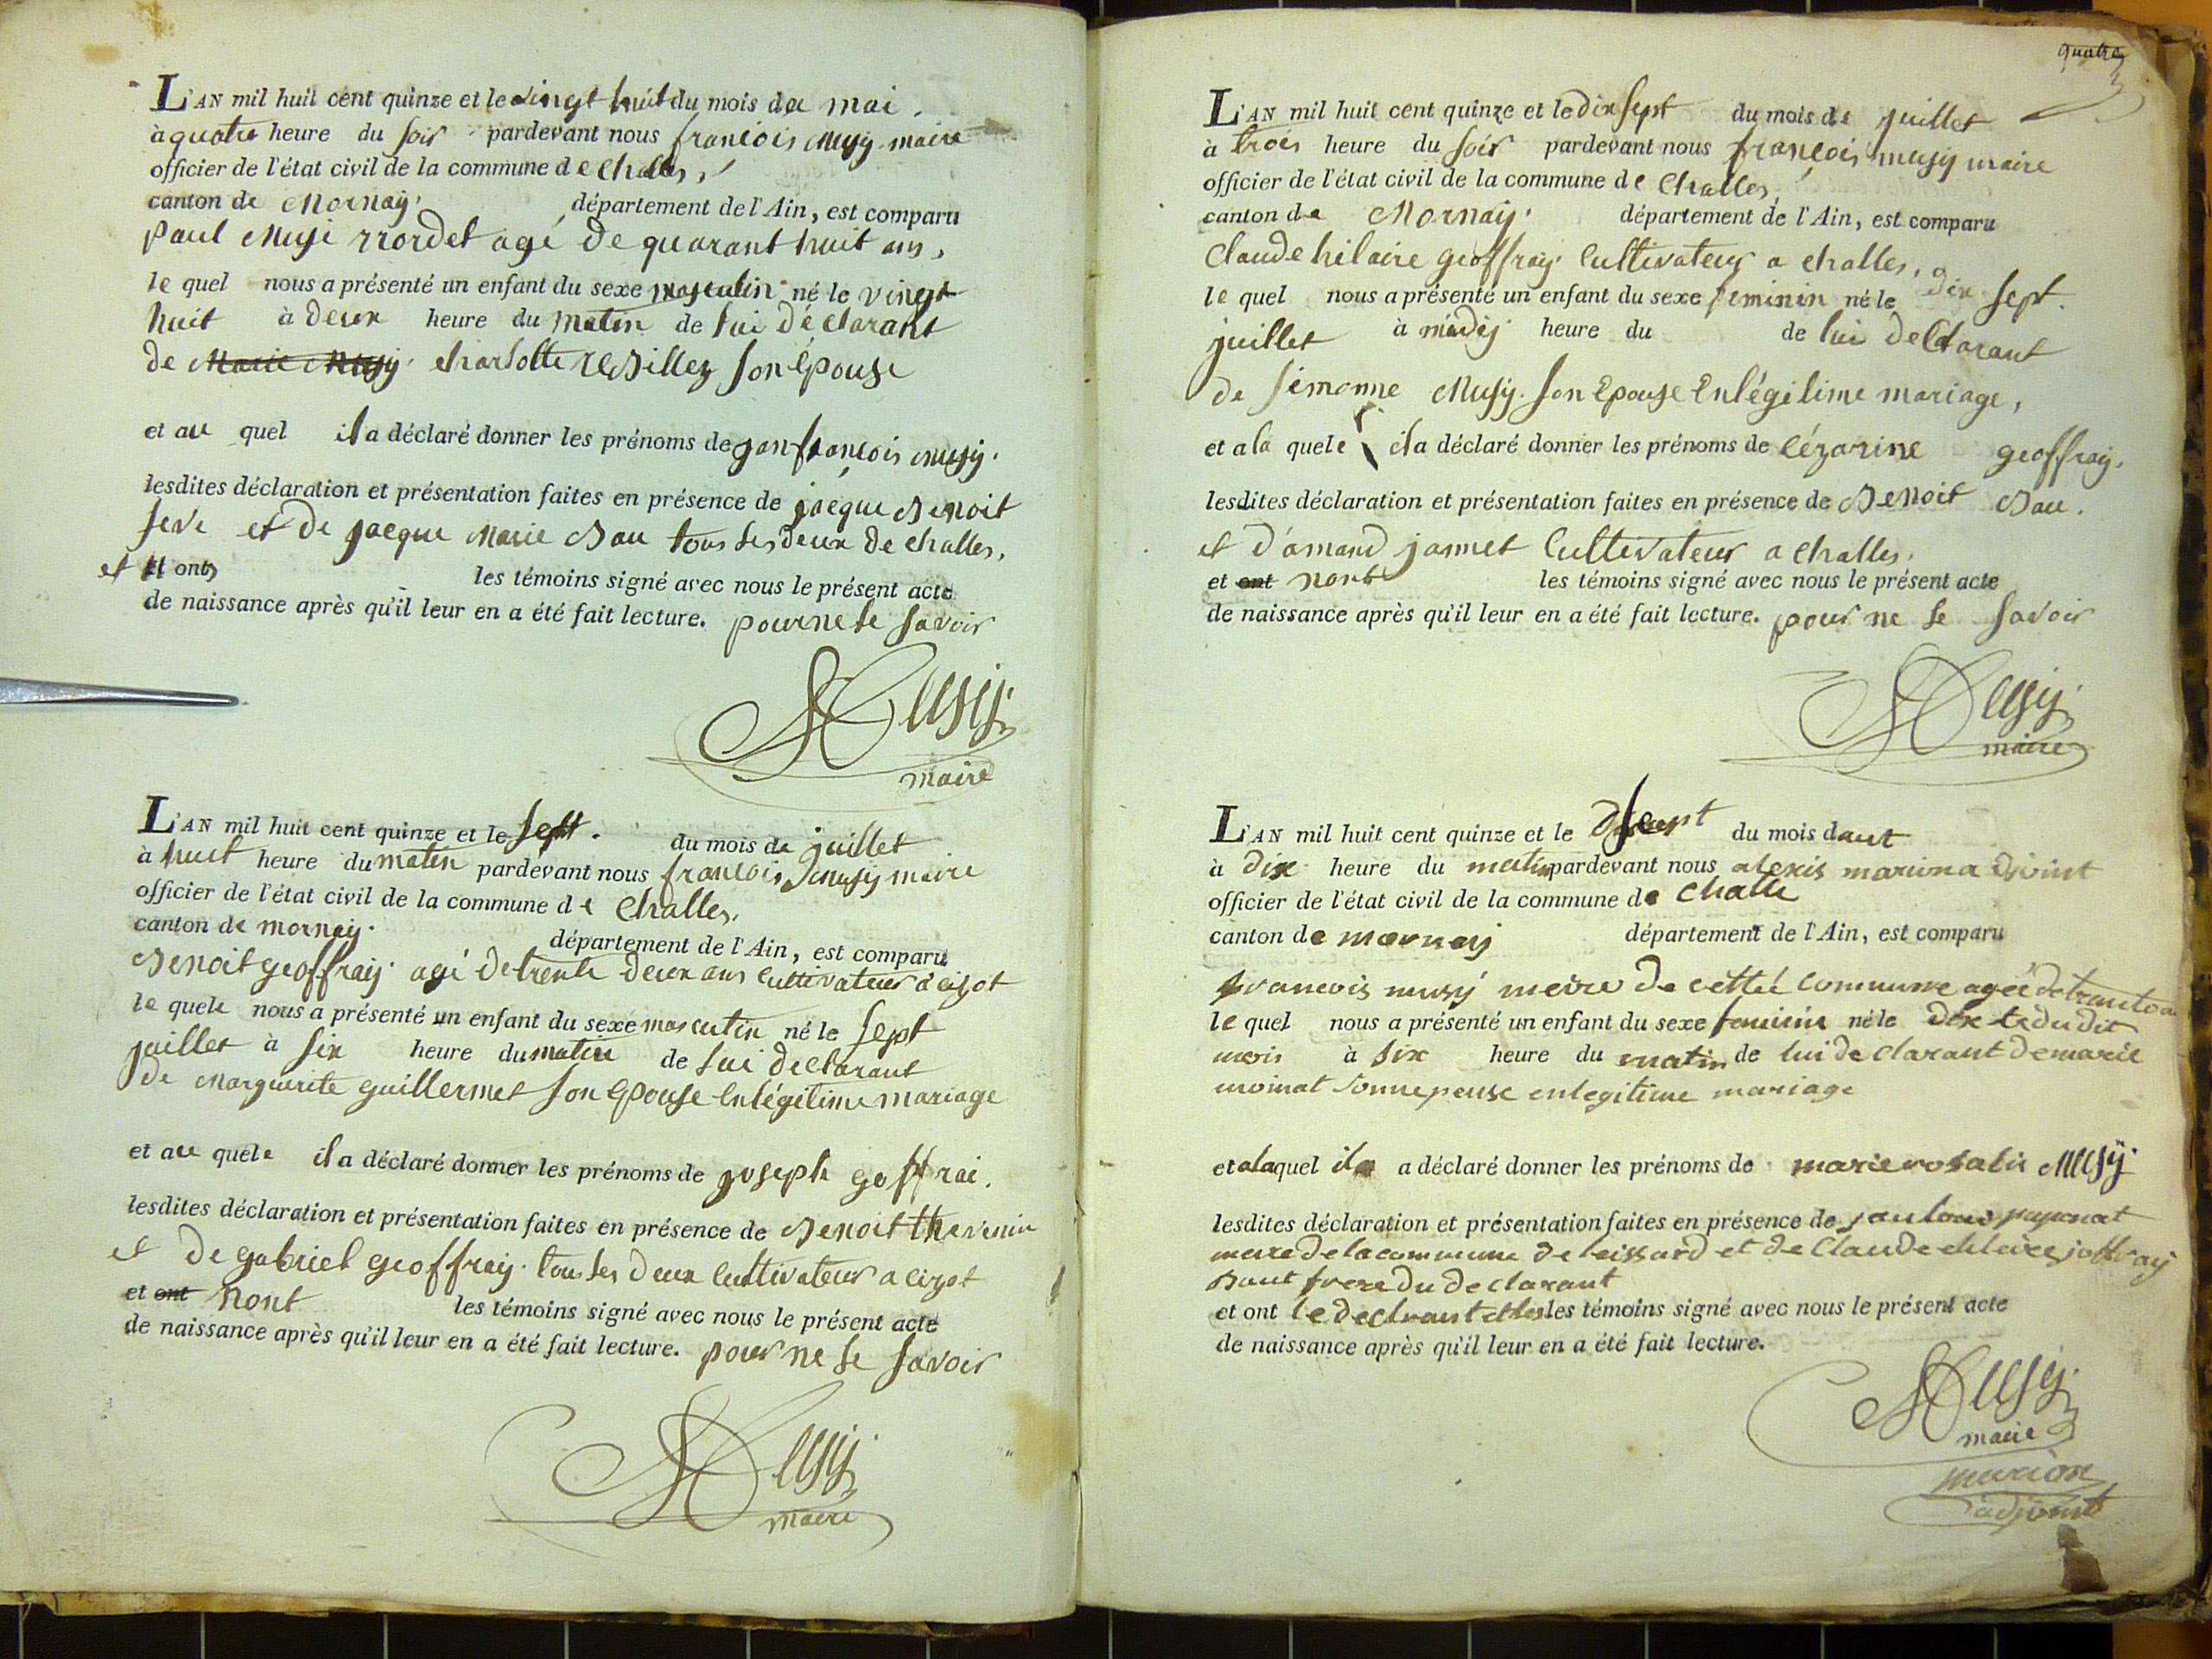 L'AN mil huit cent quinze et le vingt huit du mois de mai.
à quatre heure du soir pardevant nous françois Musy maire
officier de l'état civil de la commune de Challes,
canton de Mornay. département de l'Ain, est comparu
paul Musi agé de quarant huit ans,
le quel nous a présenté un enfant du sexe masculin né le vingt
huit à deux heure du matin de lui déclarant
de Marie Musy charlotte son épouse
et au quel il a déclaré donner les prénoms de jan françois Musy.
lesdites déclaration et présentation faites en présence de jacque Benoit
feve et de jacque Marie Bau tous les deux de challes,
et et ont les témoins signé avec nous le présent acte
de naissance après qu'il leur en a été fait lecture. pour ne le savoir
Musy
maire
L'AN mil huit cent quinze et le sept. du mois de juillet
à huit heure du matin pardevant nous françois Musy maire
officier de l'état civil de la commune de Challes,
canton de mornay. département de l'Ain, est comparu
Benoit geoffray. agé de trente deux ans cultivateur a cizot
le quele nous a présenté un enfant du sexe masculin né le sept
juillet à six heure du matin de lui declarant
de Marguerite guillermet son Epouse En légitime mariage
et au quele il a déclaré donner les prénoms de joseph geffrai.
lesdites déclaration et présentation faites en présence de Benoit thevenin
et de gabriel geoffray. tous les deux cultivateur a cizot
et ont nont les témoins signé avec nous le présent acte
de naissance après qu'il leur en a été fait lecture. pour ne le savoir
Musy
maire
quatre
L'AN mil huit cent quinze et le dix sept du mois de juillet
à trois heure du soir pardevant nous françois musy maire
officier de l'état civil de la commune de Challes,
canton de Mornay. département de l'Ain, est comparu
Claude hilaire geoffray. Cultivateur a challes,
le quel nous a présenté un enfant du sexe feminin né le dix sept.
juillet à midy heure du de lui declarant
de simonne Musy. son Epouse En légitime mariage,
et a la quele il a déclaré donner les prénoms de Cézarine geoffray.
lesdites déclaration et présentation faites en présence de Benoit Bau.
et d'amand jannet Cultivateur a challes.
et ont nont les témoins signé avec nous le présent acte
de naissance après qu'il leur en a été fait lecture. pour ne le savoir
Musy
maire
L'AN mil huit cent quinze et le du mois daut
à dix heure du matin pardevant nous alexis marion adjoint
officier de l'état civil de la commune de challe
canton de mornay département de l'Ain, est comparu
francois musy meire de cetteé commune ageé de
le quel nous a présenté un enfant du sexe feminin né le dix dudit
mois à six heure du matin de lui de clarant de marie
moinat sonnepeuse en legitime mariage
et alaquel il a déclaré donner les prénoms de marie rosalie Musy
lesdites déclaration et présentation faites en présence de
meire de la commune de leissard et de Claude joffray
baut frere du declarant
et ont le declrant et les les témoins signé avec nous le présent acte
de naissance après qu'il leur en a été fait lecture.
Musy
maire
marion
adjoint